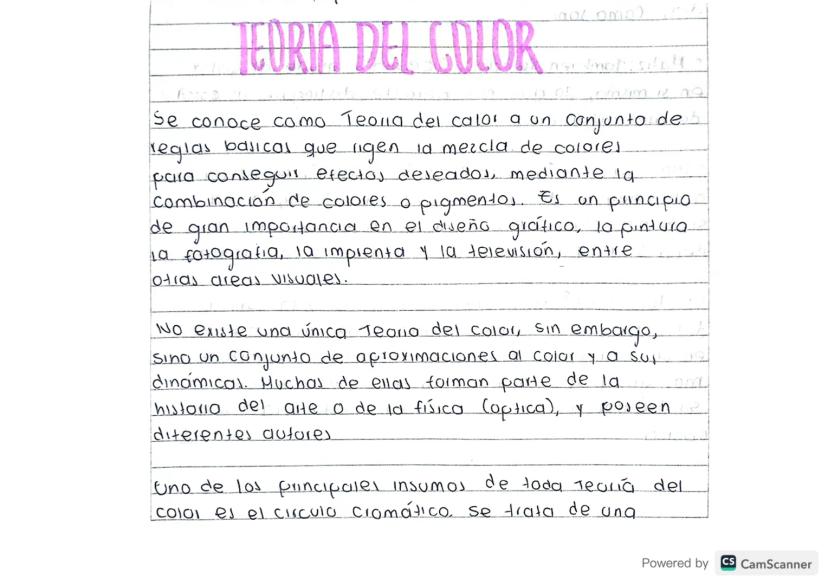 TEORIA DEL COLOR
Se conoce como Teoria del calor a un conjunto de
reglas basicas que rigen la mezcla de colores
para conseguir efectos deseados, mediante la
combinación de colores o pigmentos. Es un principio
de gran importancia en el diseño gráfico, la pintura
la fotografia, la imprenta y la televisión, entre
otras areas visuales.
No existe una única Teoria del color, sin embargo,
sino un conjunto de aproximaciones al color y a sus
dinámicas. Muchas de ellas forman parte de la
historia del arte o de la física (optica), y poseen
diferentes autores
Uno de los principales insumos de toda Teoría del
color es el circulo cromático. Se trata de una
Powered by CS CamScanner